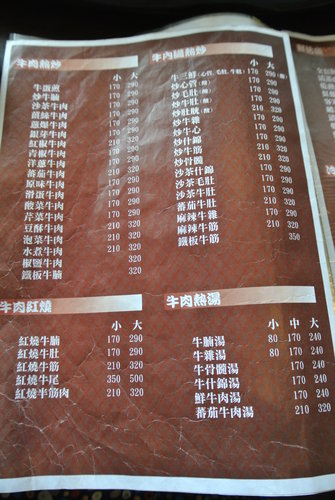 牛肉熱炒
小 大
牛蛋煎 170 290
炒牛腩 170 290
沙茶牛肉 170 290
薑絲牛肉 170 290
蔥爆牛肉 170 290
銀芽牛肉 170 290
紅椒牛肉 210 320
青椒牛肉 170 290
洋蔥牛肉 170 290
蕃茄牛肉 210 320
原味牛肉 170 290
滑蛋牛肉 170 290
酸菜牛肉 170 290
芹菜牛肉 170 290
豆酥牛肉 210 320
泡菜牛肉 210 320
水煮牛肉 210 320
椒鹽牛肉 320
鐵板牛腩 320
牛內臟熱炒
小 大
牛三鮮(心管,毛肚,牛筋) 170 290(酸)
炒心管(酸) 170 290
炒毛肚(酸) 170 290
炒牛肚(酸) 170 290
炒肚胘(酸) 210 320
炒牛雜 170 290
炒牛心 170 290
炒什錦 210 320
炒牛筋 210 320
炒骨髓 210 320
沙茶什錦 210 320
沙茶毛肚 170 290
沙茶牛肚 170 290
蕃茄牛肚 210 320
麻辣牛雜 210 320
麻辣牛筋 210 320
鐵板牛筋 350
牛肉紅燒
小 大
紅燒牛腩 170 290
紅燒牛肚 170 290
紅燒牛筋 210 320
紅燒牛尾 350 500
紅燒半筋肉 210 320
牛肉熱湯
小 中 大
牛腩湯 80 170 240
牛雜湯 80 170 240
牛骨髓湯 170 240
牛什錦湯 170 240
鮮牛肉湯 170 240
蕃茄牛肉湯 210 320